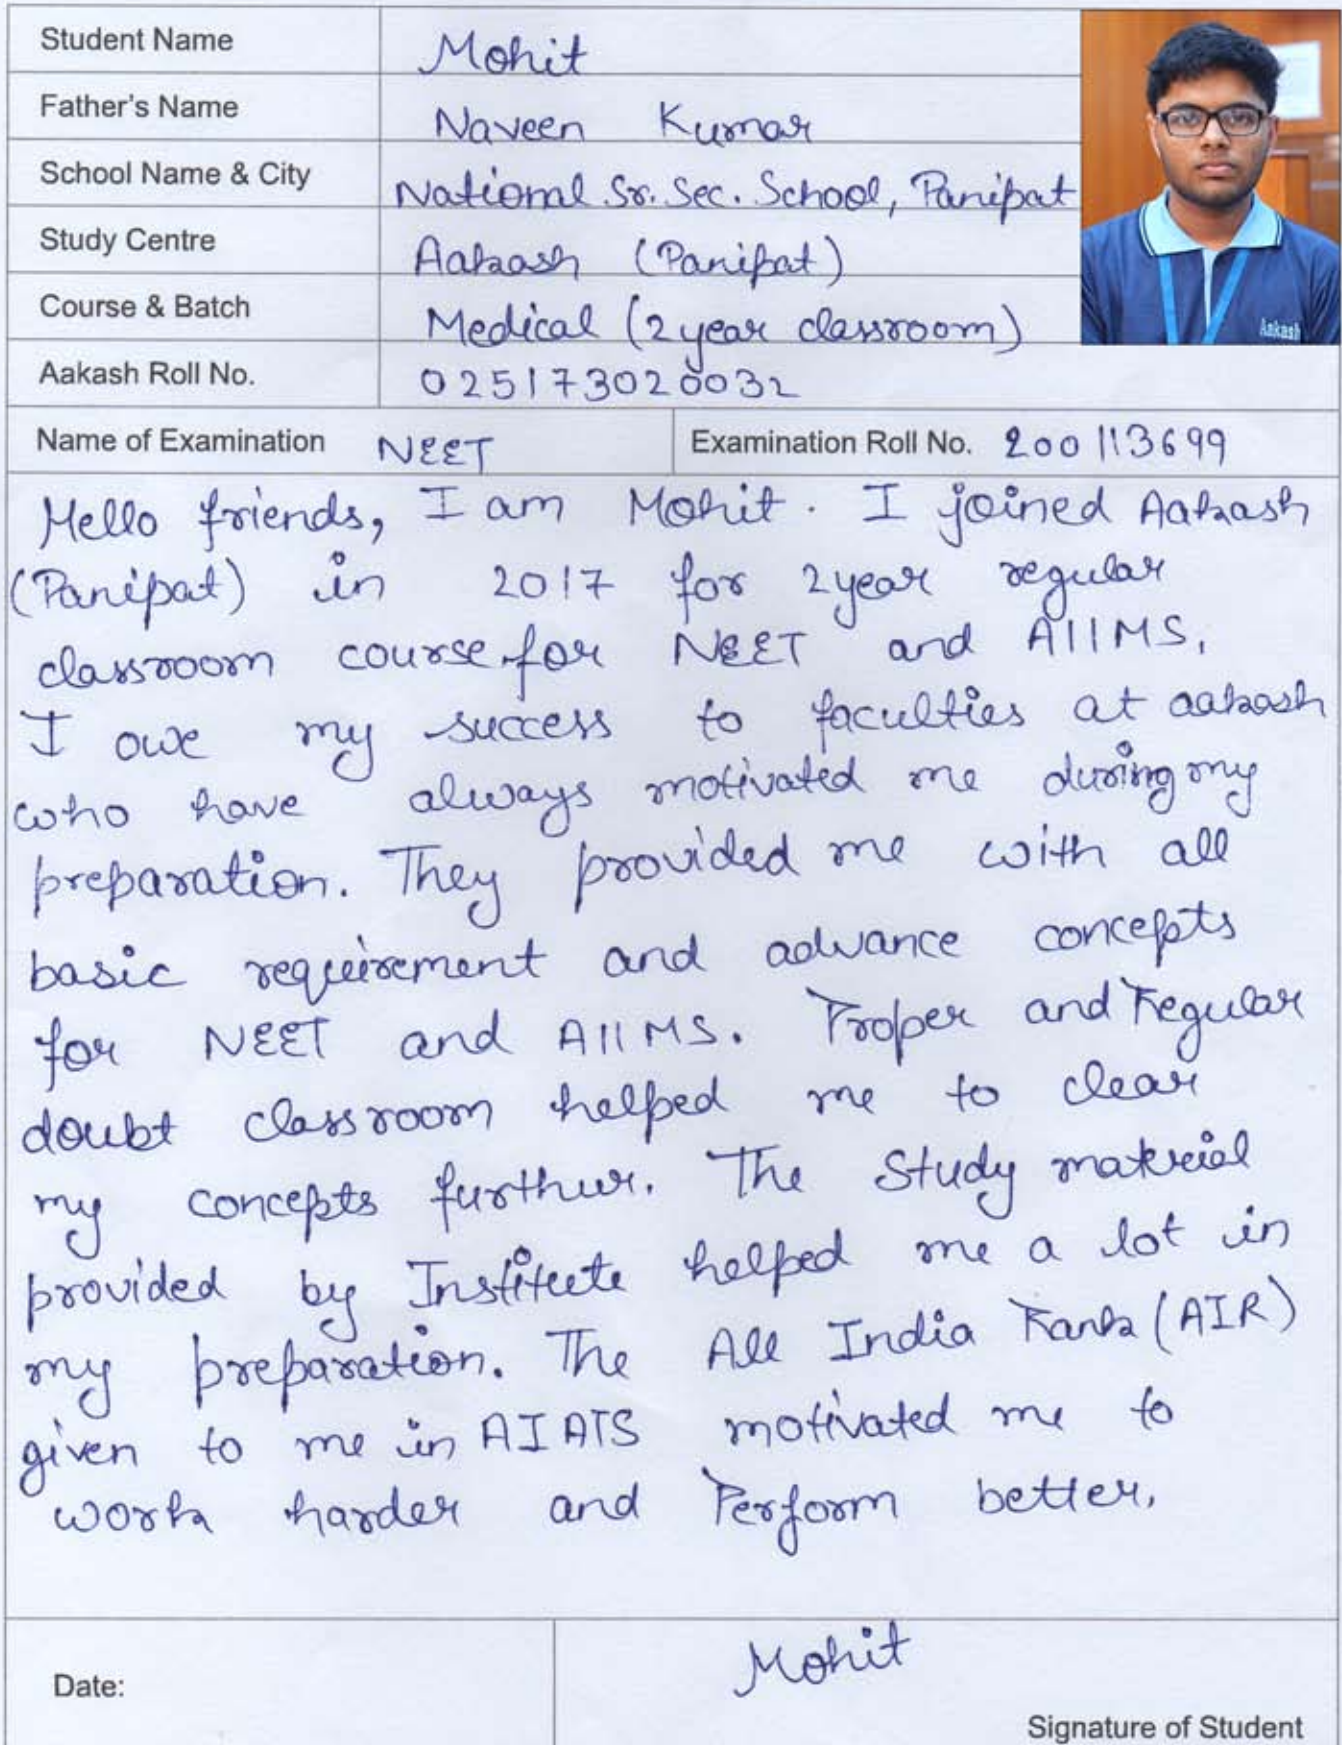 Student Name Mohit
Father's Name Naveen Kumar
School Name & City National Sr. Sec. School, Panipat
Study Centre Aakash (Panipat)
Course & Batch Medical (2 year classroom)
Aakash
Aakash Roll No. 025173020032
Name of Examination NEET Examination Roll No. 200113699
Hello friends, I am Mohit. I joined Aakash
(Panipat) in 2017 for 2 year regular
classroom course for NEET and AIIMS.
I owe my success to faculties at aakash
who have always motivated me during my
preparation. They provided me with all
basic requirement and advance concepts
for NEET and AIIMS. Proper and regular
doubt classroom helped me to clear
my concepts further. The Study material
provided by Institute helped me a lot in
my preparation. The All India Rank (AIR)
given to me in AIATS motivated me to
work harder and Perform better.
Mohit
Date:
Signature of Student